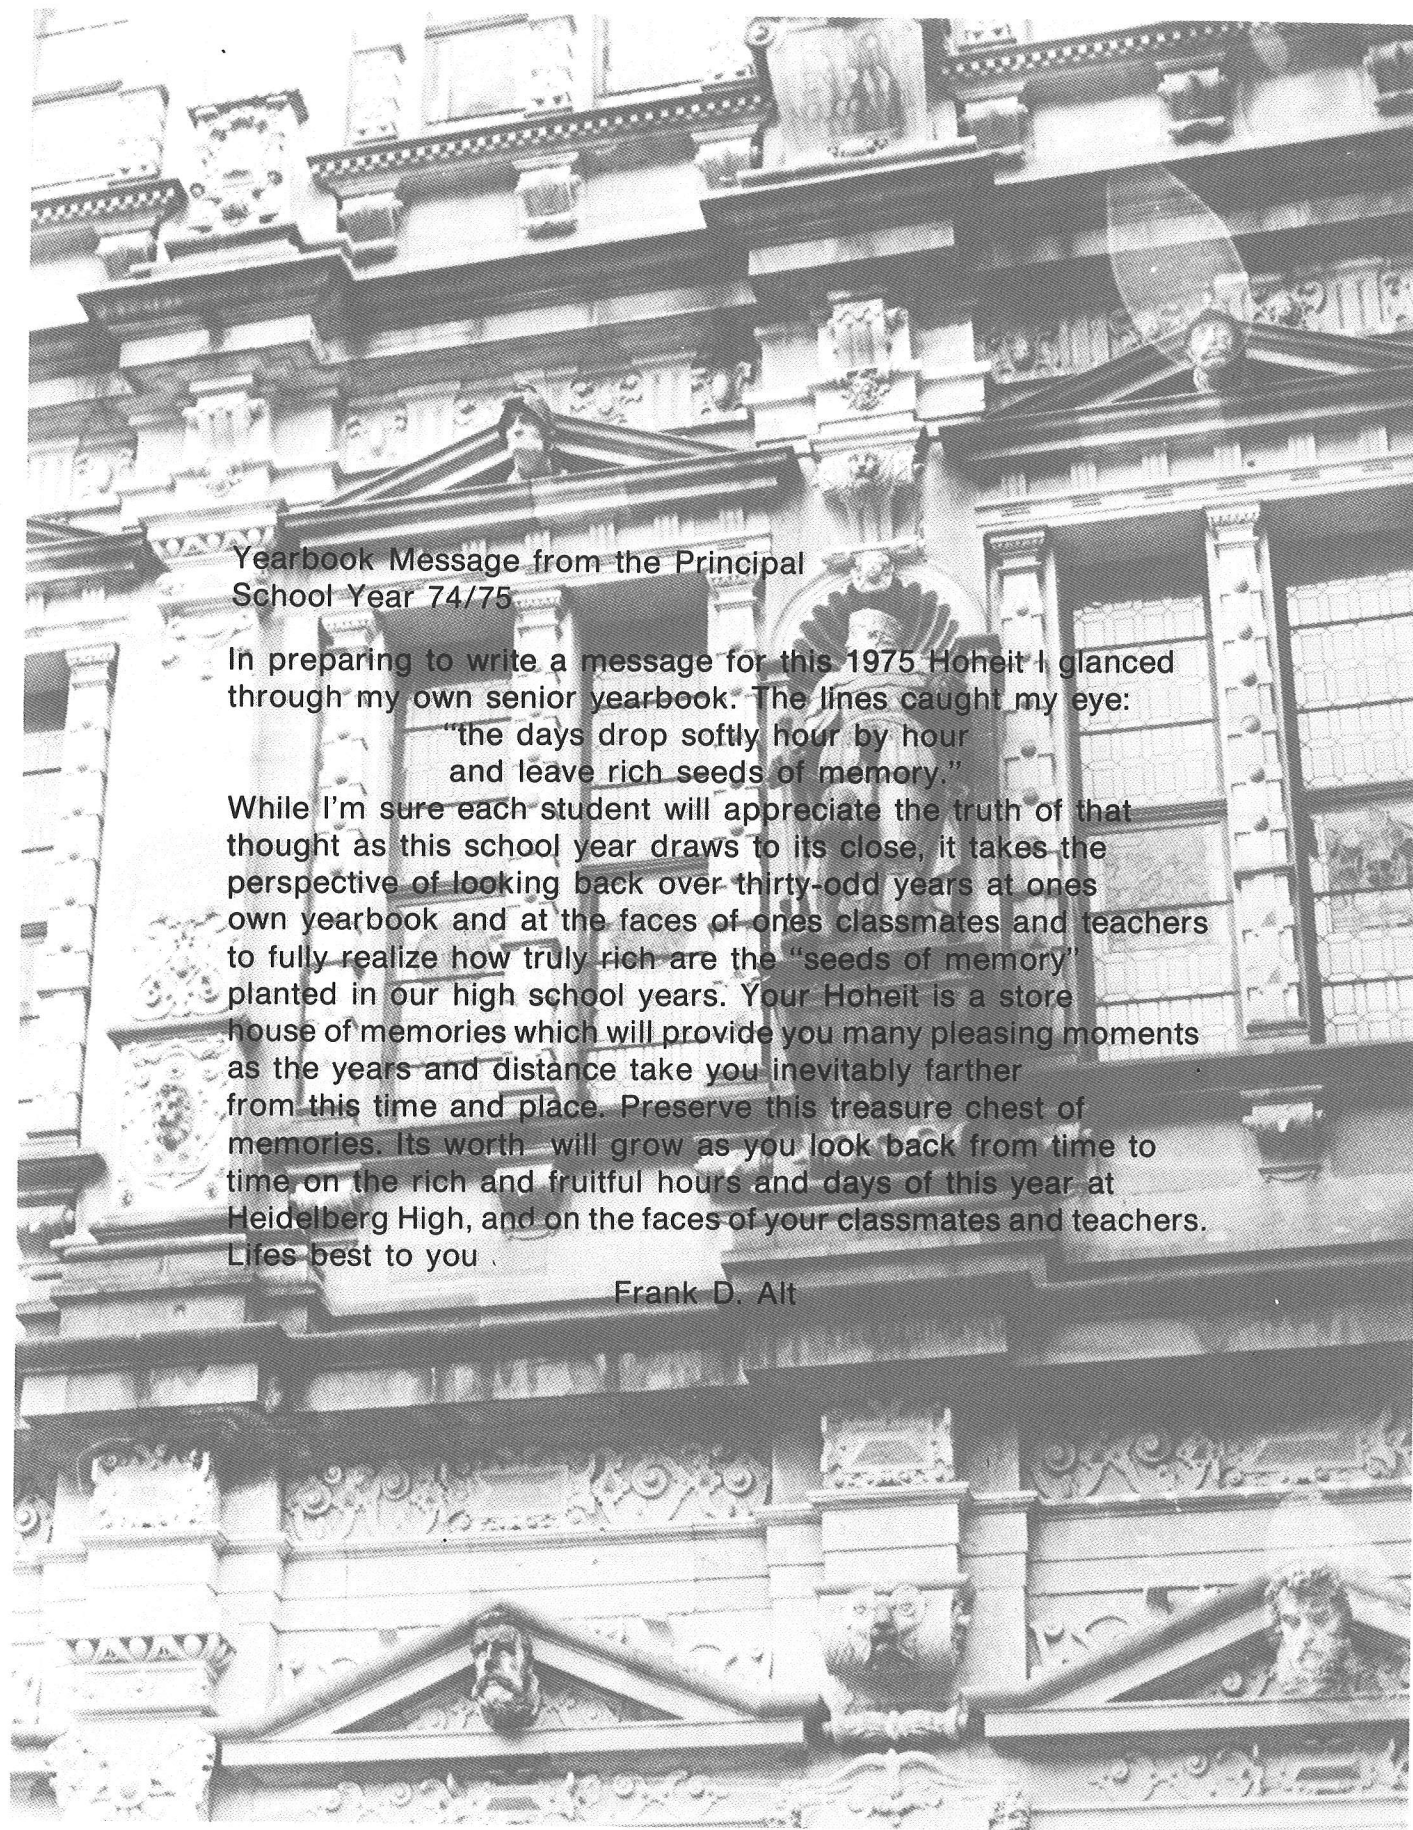 Yearbook Message from the Principal
School Year 74/75
In preparing to write a message for this 1975 Hoheit I glanced
through my own senior yearbook. The lines caught my eye:
"the days drop softly hour by hour
and leave rich seeds of memory."
While I'm sure each student will appreciate the truth of that
thought as this school year draws to its close, it takes the
perspective of looking back over thirty-odd years at ones
own yearbook and at the faces of ones classmates and teachers
to fully realize how truly rich are the "seeds of memory"
planted in our high school years. Your Hoheit is a store
house of memories which will provide you many pleasing moments
as the years and distance take you inevitably farther
from this time and place. Preserve this treasure chest of
memories. Its worth will grow as you look back from time to
time on the rich and fruitful hours and days of this year at
Heidelberg High, and on the faces of your classmates and teachers.
Lifes best to you .
Frank D. Alt